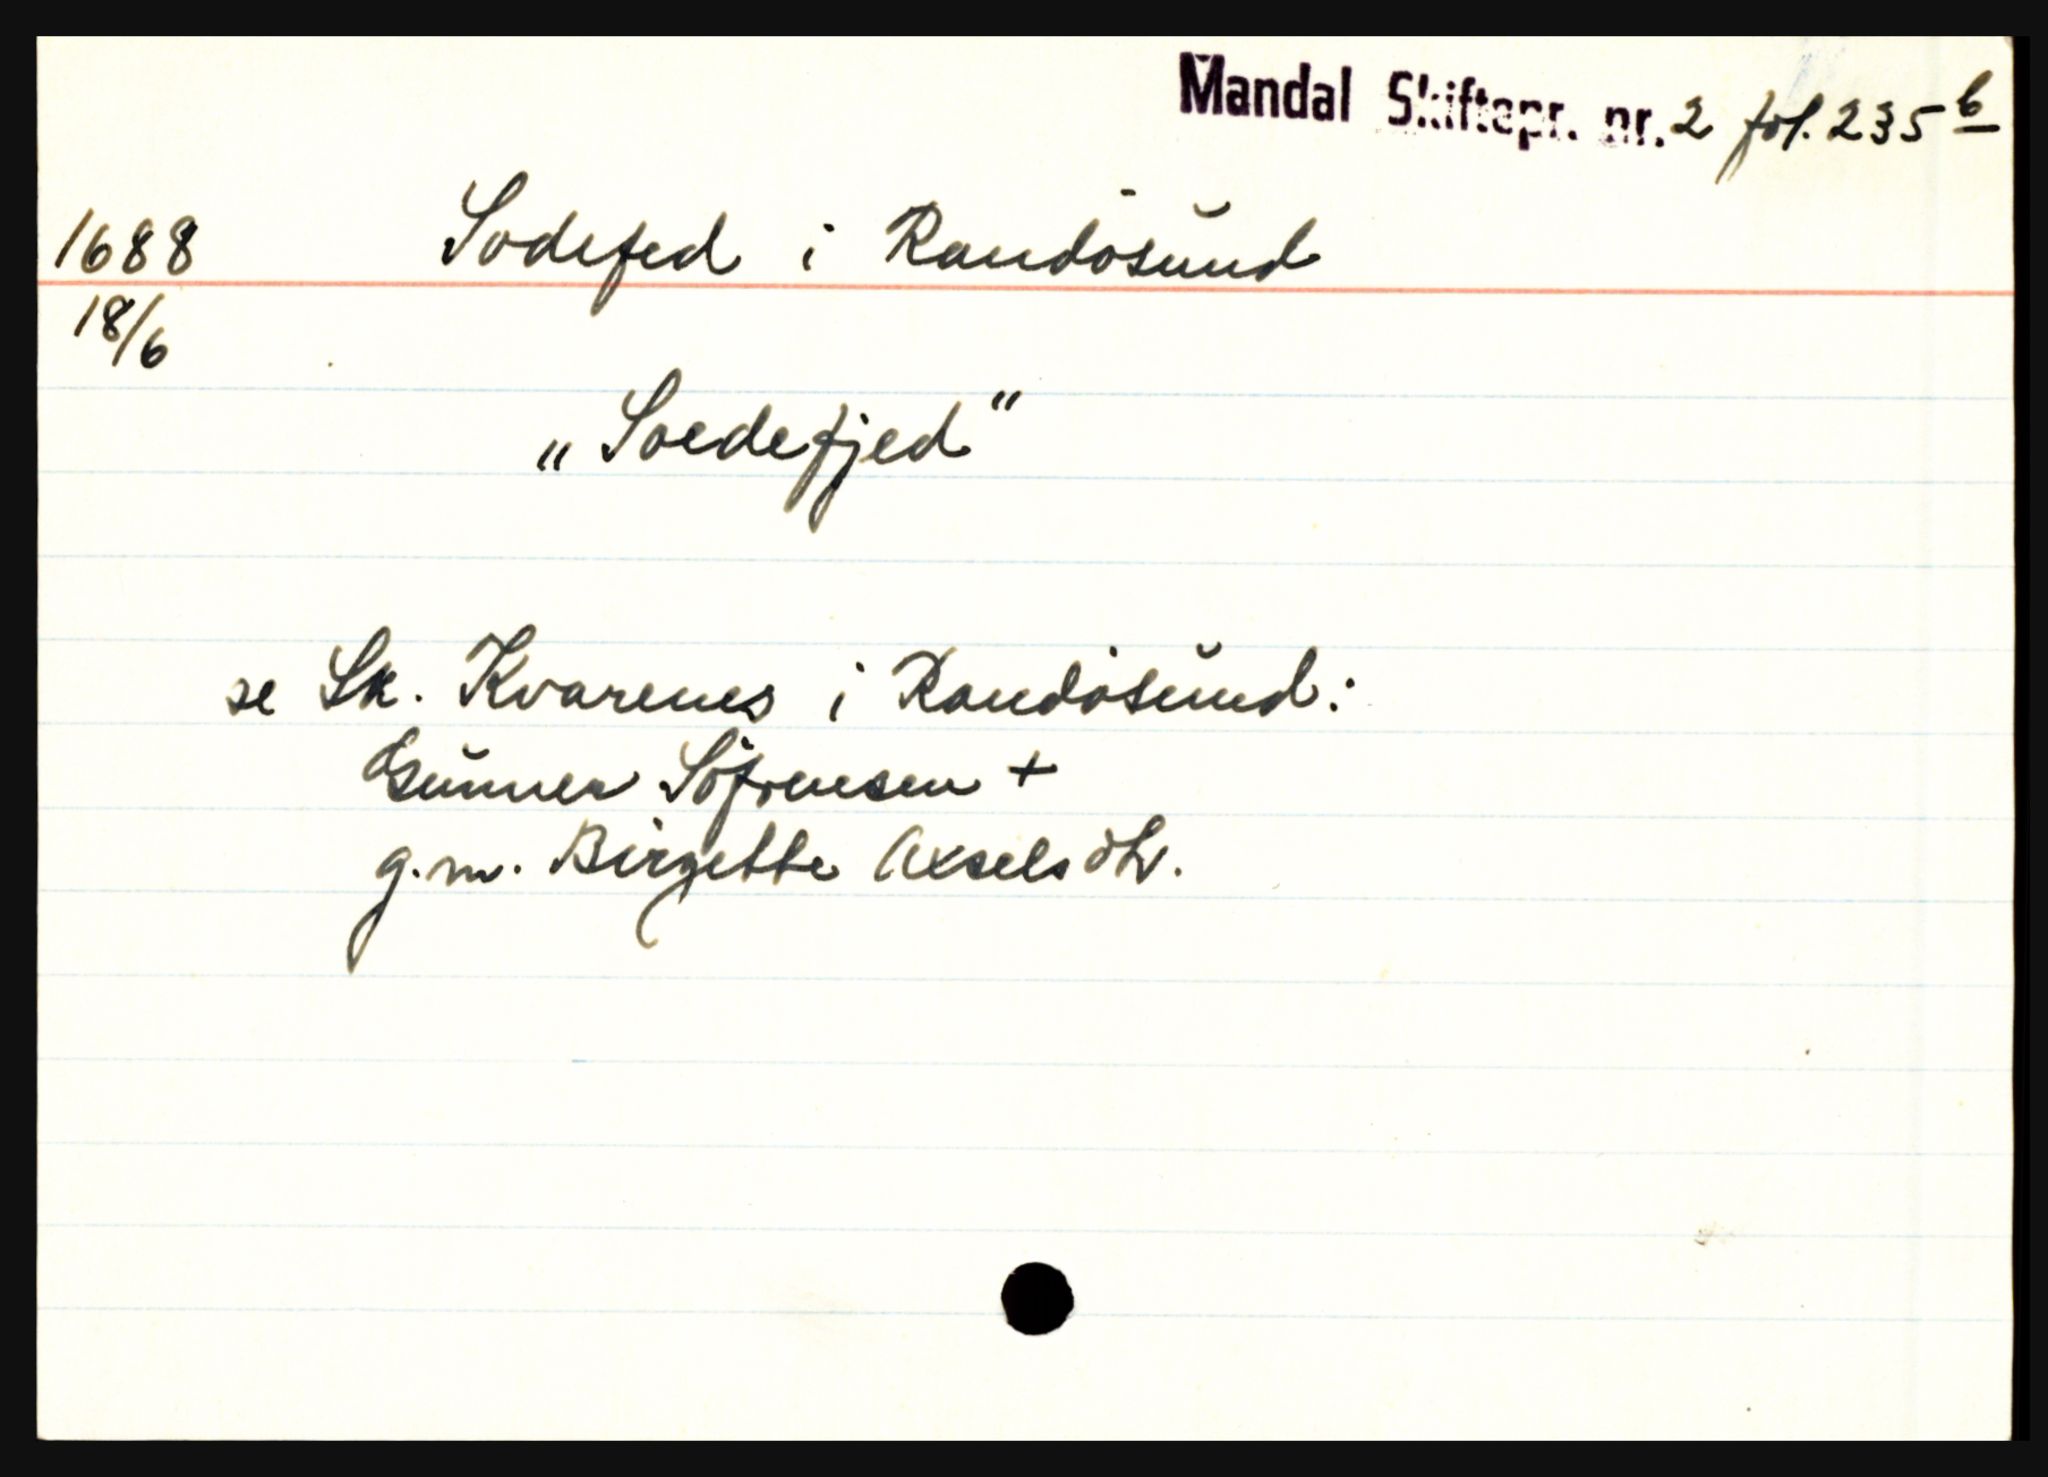 Mandal Skiftepr. nr. 2 fol. 235 b
1688 Sodefed i Randøsund
18/6
„Soedefjed“
se Sk. Kvarenes i Randøsund:
Gunner Söfrensen +
g.m. Birgette Axselsdtr.